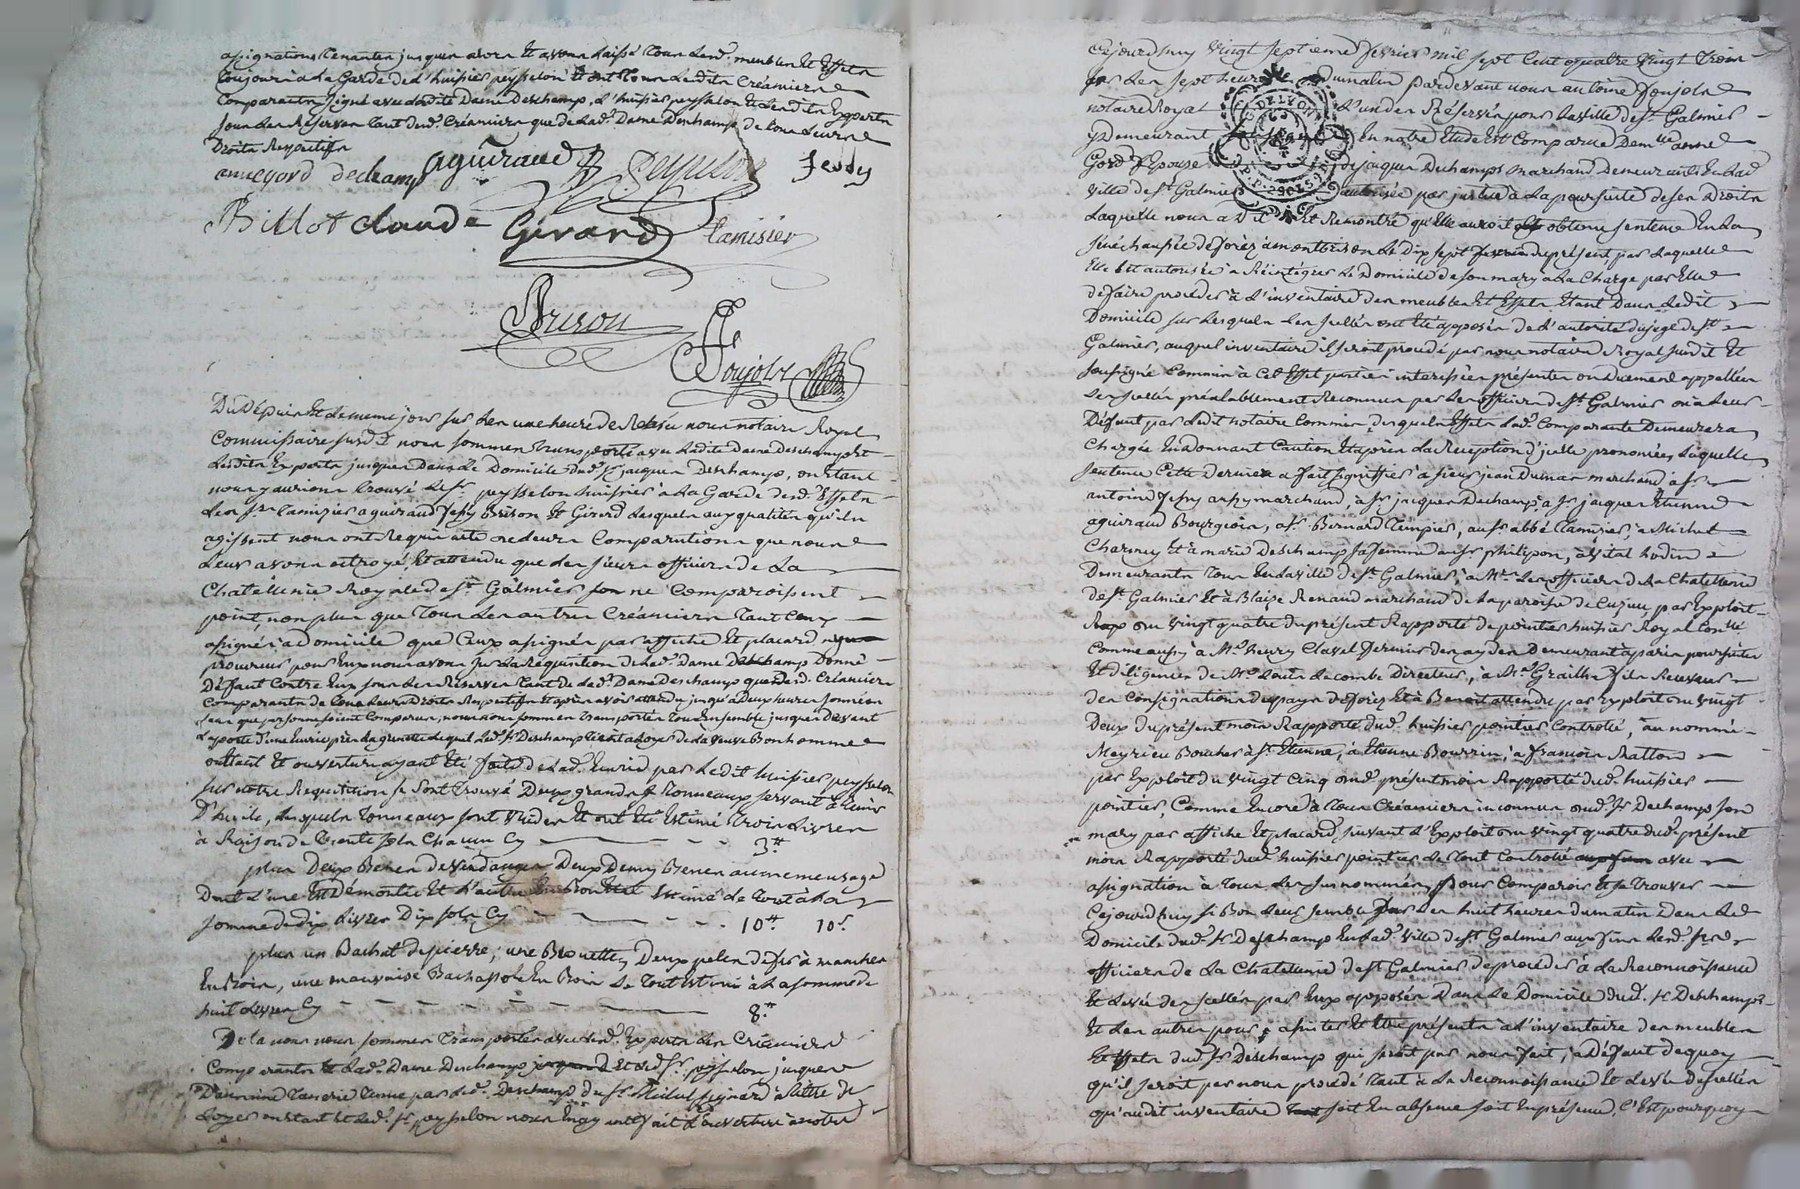 assignations tenantes jusques alors et avons laissé tous lesd. meubles et effets
toujours à la garde de l'huissier peysselon et ont tous lesdits créanciers
comparants signé avec ladite Dame Deschamp, l'huissier peysselon et lesdits experts
sous les réserves tant desd. créanciers que de lad. Dame Deschamp de tous leurs
droits respectifs
anne gord dechamp aguiraud Peysselon Jesdy
Billot claude Girard Tamisier
Brison
Poujolz
Du depuis et le meme jour sur les une heure de relevée nous notaire Royal
Commissaire susd. nous sommes transporté avec ladite Dame Deschamp et
lesdits experts jusques dans le domicile dud. Sr jacques Deschamps, ou etant
nous y aurions trouvé le Sr peysselon huissier à la garde desd. effets
les Srs Tamizier aguiraud Jesdy Brison et Girard lesquels aux qualités qu'ils
agissent nous ont requis acte de leurs comparutions que nous
leur avons octroyé, et attendu que les sieurs officiers de la
Chatellenie Royale de St Galmier ne comparoissent
point, non plus que tous les autres créanciers tant ceux
assignés à domicile que ceux assignés par affiche et placard ny
procureur pour eux nous avons sur la requisition de lad. Dame Deschamp donné
défaut contre eux sous les réserves tant de lad. Dame Deschamp que desd. créanciers
comparants de tous leurs droits respectifs et après avoir attendu jusqu'à deux heures sonnées
sans que personne soient comparus, nous nous sommes transportés tous ensemble jusques devant
la porte d'une écurie près la grenette lequel led. Sr Deschamp tient à loyer de la veuve Bonhomme
ou étant et ouverture ayant été faite de lad. écurie par ledit huissier peysselon
sur notre requisition se sont trouvé deux grands tonneaux servant à tenir
d'huile, lesquels tonneaux sont vuides et ont été estimé trois livres
à raison de trente sols chacun Cy 3ᵗᵗ
plus deux Benes de vendanges deux demy Benes
dont l'une est démontée et l'autre estimé le tout à la
somme de dix livres dix sols Cy 10ᵗᵗ 10ˢ
plus un Bachat de pierre, une Brouette, deux peles de fer à manches
en bois, une mauvaise Bachassole en bois le tout estimé à la somme de
huit livres Cy 8ᵗᵗ
De la nous nous sommes transportés avec lesd. experts les créanciers
comparants et lad. Dame Deschamp et led. Sr peysselon jusques
dans une tanerie tenue par led. Deschamp du Sr à titre de
loyer ou étant et led. Sr peysselon nous en ayant fait l'ouverture à notre
Cejourd'huy vingt septieme fevrier mil sept cent quatre vingt trois
sur les sept heures du matin pardevant nous antoine Poujolz
notaire Royal l'un des réservés pour la ville de St Galmier
y demeurant en notre etude est comparue Demlle anne
Gord Epouse de jacques Deschamps marchand demeurants en lad.
ville de St Galmier autorisée par justice à la poursuite de ses droits
Laquelle nous a dit et remontré qu'elle auroit obtenu sentence en la
sénéchaussée de forez à montbrison le dix sept du présent, par laquelle
elle est autorisée à réintégrer le domicile de son mary à la charge par elle
de faire proceder à l'inventaire des meubles et effets étant dans ledit
domicile sur lesquels les scellés ont été apposés de l'autorité du juge de St
Galmier, auquel inventaire il seroit procédé par nous notaire Royal susdit et
soussigné commis à cet effet parties interessées présentes ou duement appellées
les scellés préalablement reconnus par les officiers de St Galmier ou à leur
défaut par ledit notaire commis, desquels effets lad. comparante demeurera
chargée en donnant caution et après la reception d'icelle prononcée, laquelle
sentence cette derniere a fait signiffier à sieur jean Dumas marchand à Sr
antoine Jesdy aussy marchand, à Sr jacques Dechamp, à Sr jacques Etienne
aguiraud Bourgeois, à Sr Bernard Tamizier, au Sr abbé Tamizier, à Michel
Charney et à marie Deschamp sa femme à Sr philipon, à Vital hodin
Demeurants tous en la ville de St Galmier, à Mrs les officiers de la Chatellenie
de St Galmier et à Blaize Renaud marchand de la paroisse de Cuzieu par Exploit
du vingt quatre du présent rapporté de pointier huissier Royal Controllé
comme aussy à Me henry Clavel fermier des aydes demeurant à paris poursuites
et diligences de Me Louis Lacombe directeur, à Me Grailhe fils receveur
des Consignations du pays de forez et à Benoit attendu par Exploit du vingt
deux du présent mois rapporté dud. huissier pointier Controllé, au nommé
Meyrieu Boucher à St Etienne, à Etienne Bourrin, à francois Ratton
par Exploit du vingt cinq dud. présent mois rapporté dud. huissier
pointier, comme encore à tous créanciers inconnus dud. Sr Dechamps son
mary par affiche et placard suivant l'Exploit du vingt quatre dud. présent
mois rapporté dud. huissier pointier le tout Controllé avec
assignation à tous les susnommés pour comparoir et se trouver
Cejourd'huy si bon leur semble sur les huit heures du matin dans led.
Domicile dud. Sr Deschamps en lad. ville de St Galmier aux fins lesd. Srs
officiers de la Chatellenie de St Galmier de proceder à la reconnoissance
et levée des scellés par eux apposés dans le domicile dud. Sr Deschamps
et les autres pour assister et etre présents à l'inventaire des meubles
et effets dud. Sr Deschamps qui seroit par nous fait, à défaut de quoy
qu'il seroit par nous procédé tant à la reconnoissance et levée de scellés
qu'audit inventaire soit en absence soit en présence, C'est pourquoy